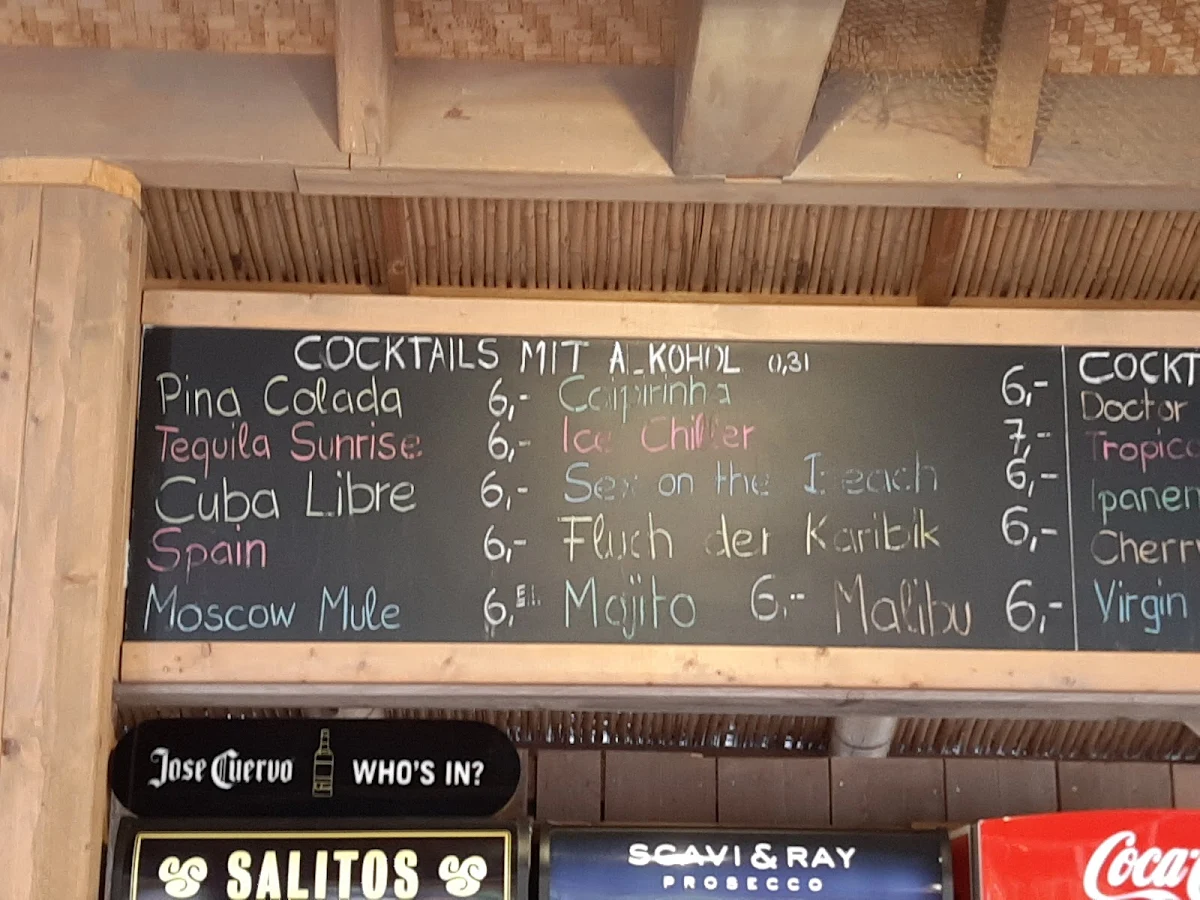 COCKTAILS MIT ALKOHOL 0,3l
Pina Colada 6,- Caipirinha 6,-
Tequila Sunrise 6,- Ice Chiller 7,-
Cuba Libre 6,- Sex on the Beach 6,-
Spain 6,- Fluch der Karibik 6,-
Moscow Mule 6, Mojito 6,- Malibu 6,-
COCKT
Doctor
Tropic
Ipanem
Cherry
Virgin
Jose Cuervo WHO'S IN?
SALITOS
SCAVI & RAY
PROSECCO
Coca